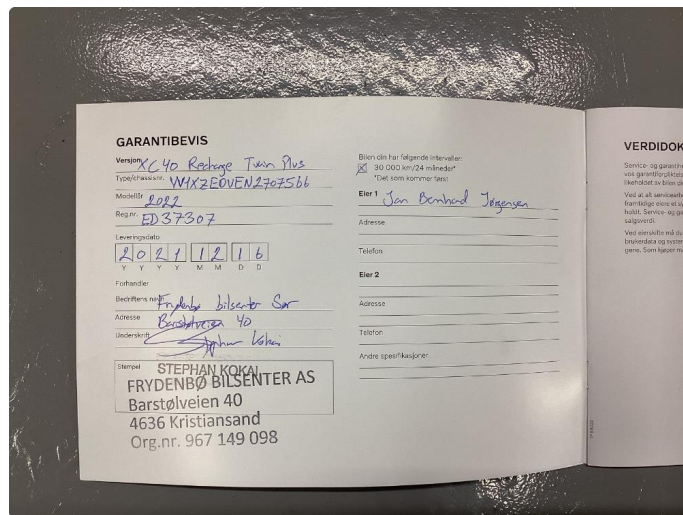 GARANTIBEVIS
Versjon XC40 Recharge Twin Plus
Type/chassisnr.
Modellår 2022
Reg.nr. ED37307
Leveringsdato
2021 12 16
Y Y Y Y M M D D
Forhandler
Bedriftens navn Frydenbø bilsenter Sør
Adresse Barstølveien 40
Underskrift Stephan Kokai
Stempel STEPHAN KOKAI
FRYDENBØ BILSENTER AS
Barstølveien 40
4636 Kristiansand
Org.nr. 967 149 098
Bilen din har følgende intervaller:
30 000 km/24 måneder*
*Det som kommer først
Eier 1 Jan Bernhard Jørgensen
Adresse
Telefon
Eier 2
Adresse
Telefon
Andre spesifikasjoner
VERDIDOK
Service- og garantihe
vos garantiforpliktels
likeholdet av bilen di
Ved at alt servicearbe
framtidige eiere et sy
holdt. Service- og ga
salgsverdi.
Ved eierskifte må du
brukerdata og system
gene. Som kjøper m